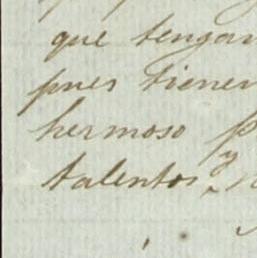 que tengan
pues tienen
hermoso
talentos, y